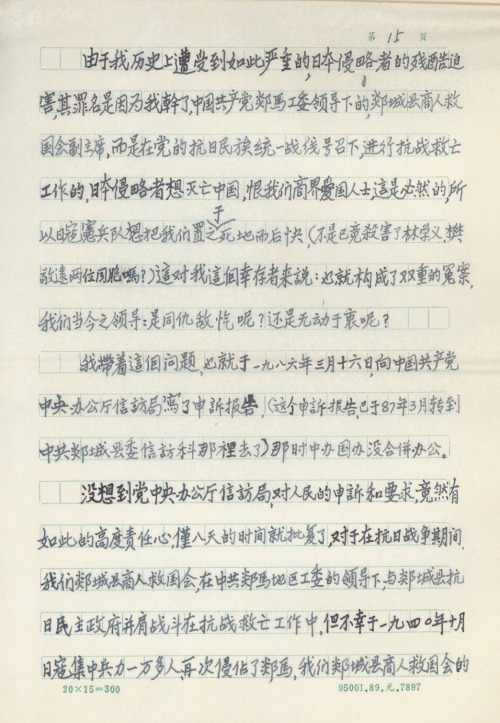 第 15 頁
由于我历史上遭受到如此严重的,日本侵略者的残酷迫
害,其罪名是因为我幹了,中国共产党郯馬工委领导下的,郯城县商人救
国会副主席,而是在党的抗日民族統一战线号召下,進行抗战救亡
工作的,日本侵略者想灭亡中国,恨我们商界爱国人士,這是必然的,所
以日寇憲兵队想把我们置之于死地而后快,(不是已竟殺害了林学义,樊
敬遠两位同胞嗎?)這对我這個幸存者来説:也就构成了双重的冤案,
我们当今之领导:是同仇敌忾呢?还是无动于衷呢?
我帶着這個问题,也就于一九八六年三月十六日,向中国共产党
中央办公厅信訪局寫了申訴报告,(这个申訴报告,已于87年3月转到
中共郯城县委信訪科那裡去了)那时中办国办没合併办公。
没想到党中央办公厅信訪局,对人民的申訴和要求,竟然有
如此的高度责任心,僅八天的时间就批复了,对于在抗日战争期间,
我们郯城县商人救国会,在中共郯馬地区工委的领导下,与郯城县抗
日民主政府并肩战斗在抗战救亡工作中,但不幸于一九四〇年十月
日寇集中兵力一万多人,再次侵佔了郯馬,我们郯城县商人救国会的
20×15=300 95001.89.元.7897